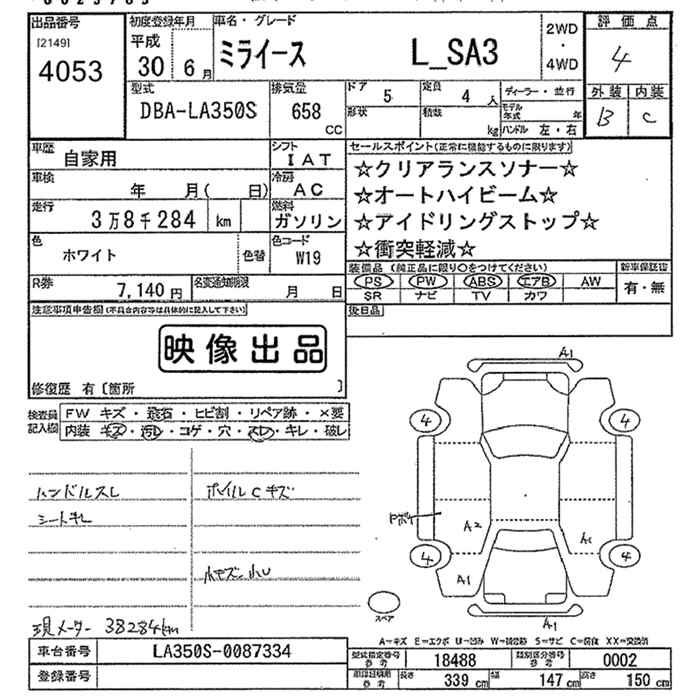 出品番号
[2149]
4053
初度登録年月
平成
30年 6月
車名・グレード
ミライース L_SA3
2WD
・
4WD
評価点
4
外装 内装
B C
型式
DBA-LA350S
排気量
658
CC
ドア
5
定員
4 人
形状
積載
kg
ディーラー・並行
モデル年式 年
ハンドル 左・右
車歴
自家用
シフト
IAT
車検
年 月( 日)
冷房
AC
走行
3万8千284 km
燃料
ガソリン
色
ホワイト
色替
色コード
W19
R券
7,140円
名変通知期限
月 日
セールスポイント(正常に機能するものに限ります)
☆クリアランスソナー☆
☆オートハイビーム☆
☆アイドリングストップ☆
☆衝突軽減☆
装備品 (純正品に限り○をつけてください)
PS PW ABS エアB AW
SR ナビ TV カワ
新車保証書
有・無
後日品
注意事項申告欄(不具合内容等は具体的に記入して下さい)
映像出品
修復歴 有〔箇所 〕
検査員
記入欄
FW キズ・飛石・ヒビ割・リペア跡・×要
内装 キズ・汚レ・コゲ・穴・スレ・キレ・破レ
ハンドルスレ
シートキレ
ホイルCキズ
小キズ・小U
現メーター 38284km
A1
4
4
Pボケ
A2
A1
4
4
A1
A1
スペア
A=キズ E=エクボ U=凹み W=補修跡 S=サビ C=腐食 XX=交換済
車台番号
LA350S-0087334
登録番号
型式指定番号
参考
18488
類別区分番号
参考
0002
長さ
339 cm
幅
147 cm
高さ
150 cm